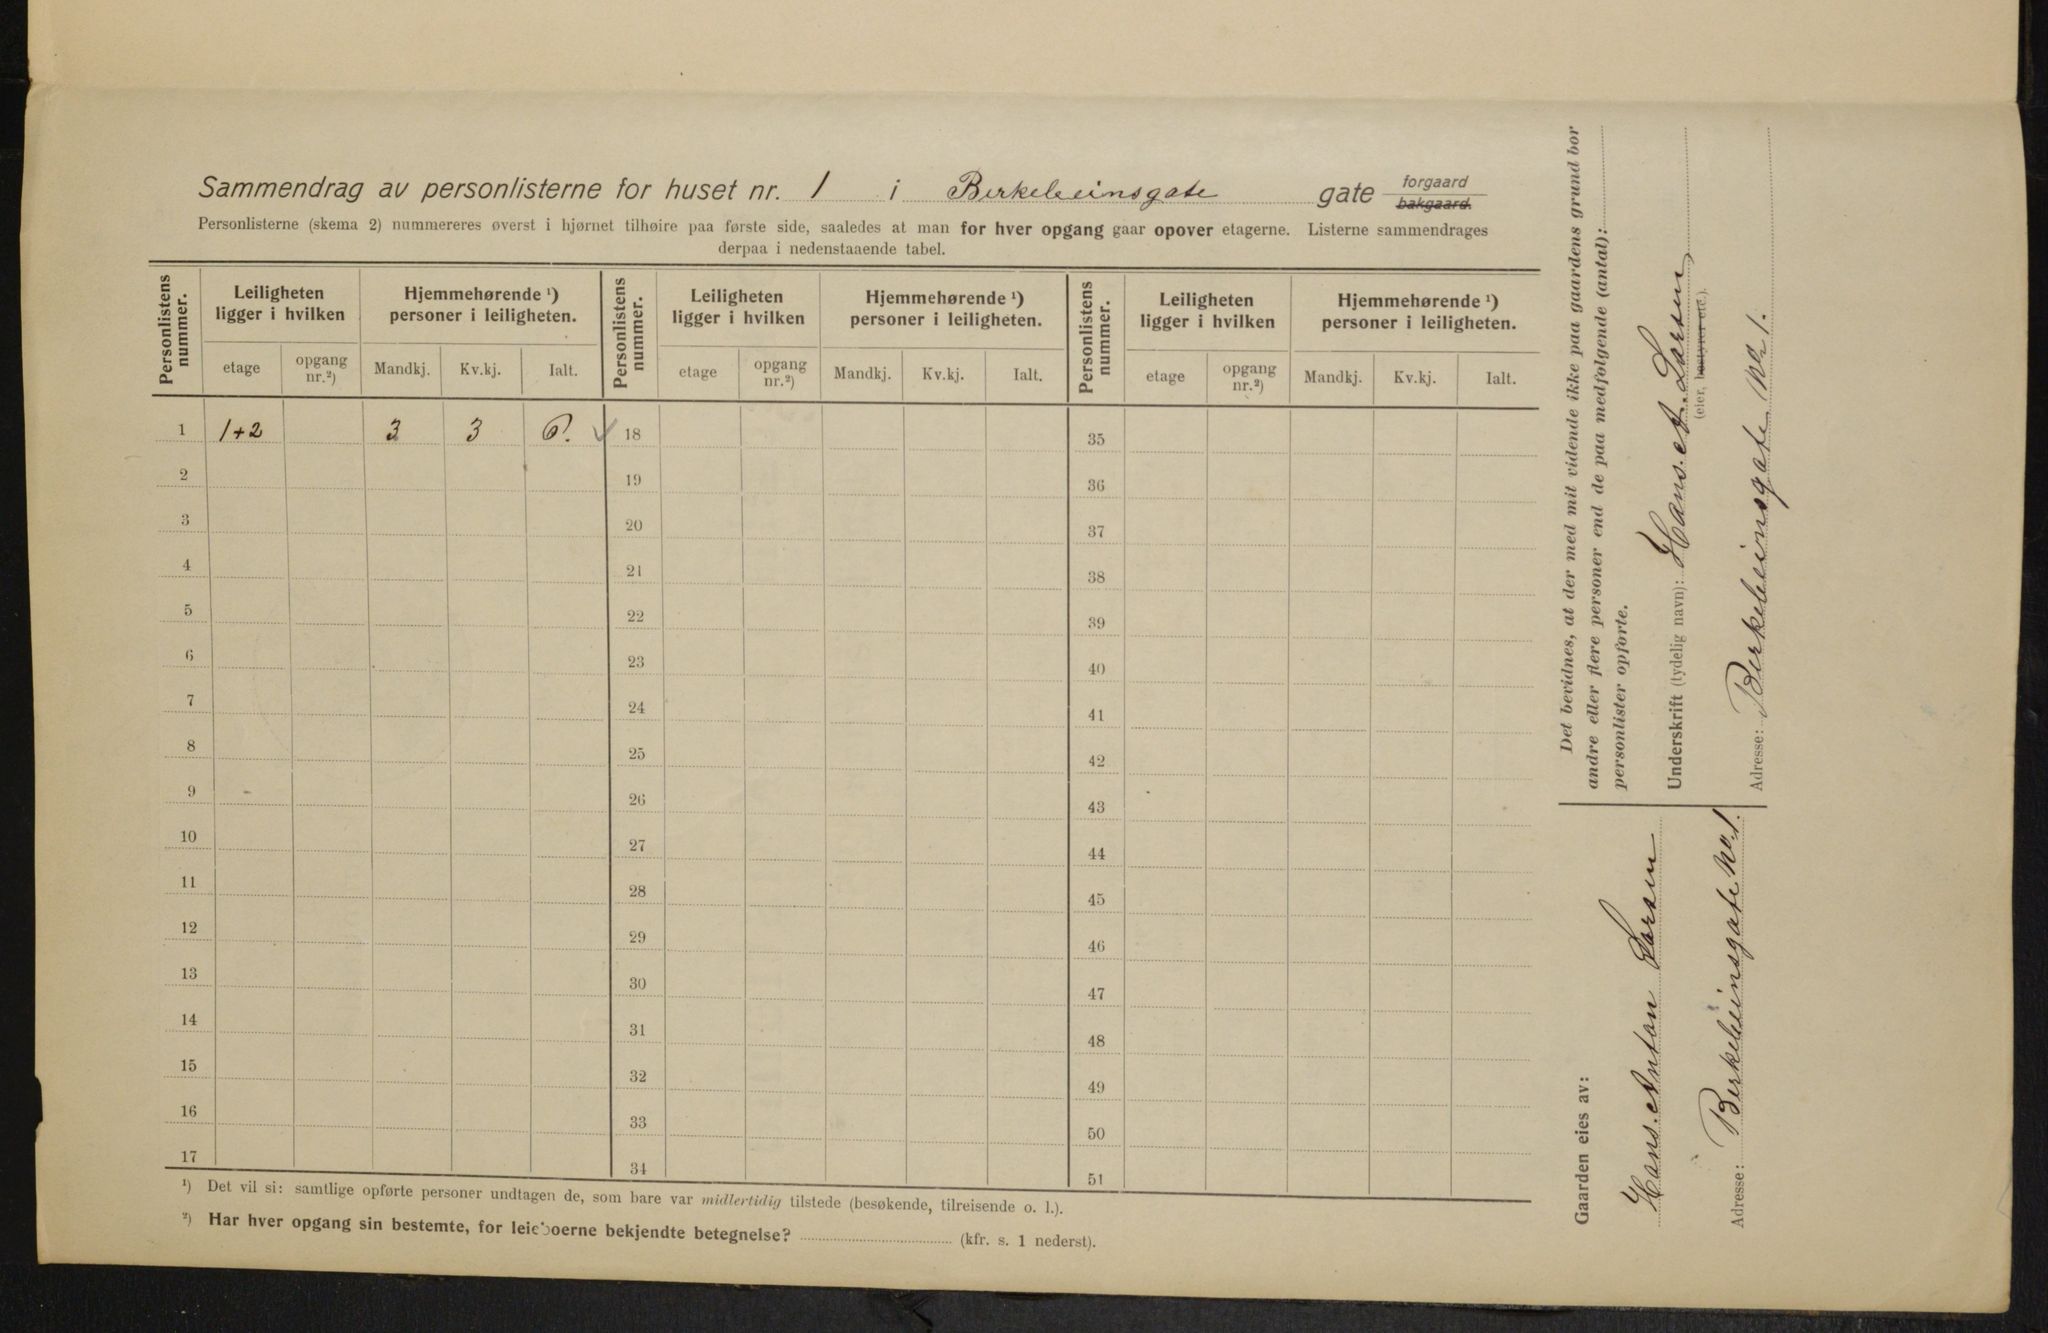 Sammendrag av personlisterne for huset nr. 1 i Birkebeinsgate gate forgaard bakgaard.
Personlisterne (skema 2) nummereres øverst i hjørnet tilhøire paa første side, saaledes at man for hver opgang gaar opover etagerne. Listerne sammendrages
derpaa i nedenstaaende tabel.
Personlistens nummer. Leiligheten ligger i hvilken Hjemmehørende ¹) personer i leiligheten. Personlistens nummer. Leiligheten ligger i hvilken Hjemmehørende ¹) personer i leiligheten. Personlistens nummer. Leiligheten ligger i hvilken Hjemmehørende ¹) personer i leiligheten.
etage opgang nr.²) Mandkj. Kv.kj. Ialt. etage opgang nr.²) Mandkj. Kv.kj. Ialt. etage opgang nr.²) Mandkj. Kv.kj. Ialt.
1 1+2 3 3 6. 18 35
2 19 36
3 20 37
4 21 38
5 22 39
6 23 40
7 24 41
8 25 42
9 26 43
10 27 44
11 28 45
12 29 46
13 30 47
14 31 48
15 32 49
16 33 50
17 34 51
¹) Det vil si: samtlige opførte personer undtagen de, som bare var midlertidig tilstede (besøkende, tilreisende o. l.).
²) Har hver opgang sin bestemte, for leieboerne bekjendte betegnelse? (kfr. s. 1 nederst).
Det bevidnes, at der med mit vidende ikke paa gaardens grund bor
andre eller flere personer end de paa medfølgende (antal):
personlister opførte.
Underskrift (tydelig navn): Hans. A. Larsen
(eier, bestyrer etc.).
Adresse: Birkebeinsgate No 1.
Gaarden eies av:
Hans. Anton Larsen
Adresse: Birkebeinsgate No 1.